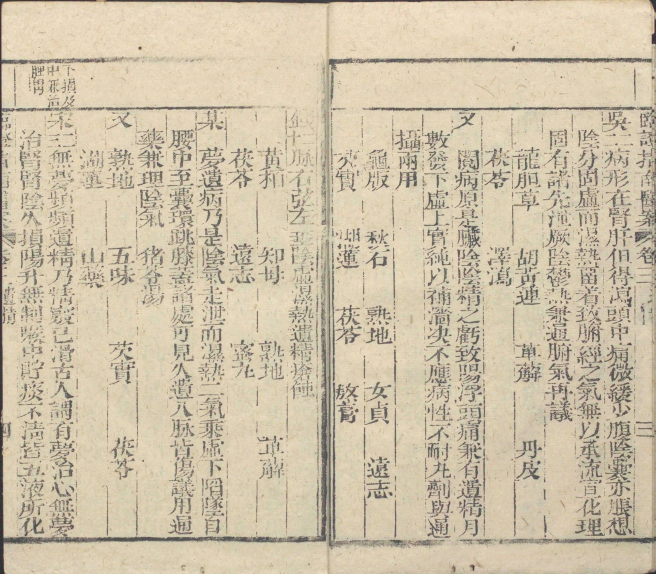 臨證指南醫案 卷三 三
吳 二 病形在腎肝但得萬頭中痛微緩少腹陰囊亦脹想
陰分固虛而濕熱留着致腑經之氣無以承流宣化理
固有諸先泄厥陰鬱熱兼通腑氣再議
龍胆草 胡黃連 萆薢 丹皮
茯苓 澤瀉
又 閱病原是臟陰陰精之虧致陽浮頭痛兼有遺精月
數發下虛上實純以補澀決不應病性不耐丸劑與通
攝兩用
龜版 秋石 熟地 女貞 遠志
芡實 湖蓮 茯苓 熬膏
錢 十 脉右弦左 至陰虛濕熱遺精痿
黃柏 知母 熟地 萆薢
茯苓 遠志 蜜丸
某 夢遺病乃是陰氣走泄而濕熱二氣乘虛下陷墜自
腰中至囊環跳膝蓋諸處可見久遺八脉皆傷議用通
藥兼理陰氣 猪苓湯
又 熟地 五味 芡實 茯苓
湖蓮 山藥
下損及中形高脾胃
宋 二三 無夢頻頻遺精乃精竅已滑古人謂有夢治心無夢
治腎腎陰久損陽升無制喉中貯痰不清皆五液所化
臨證指南醫案 卷三 遺精 四